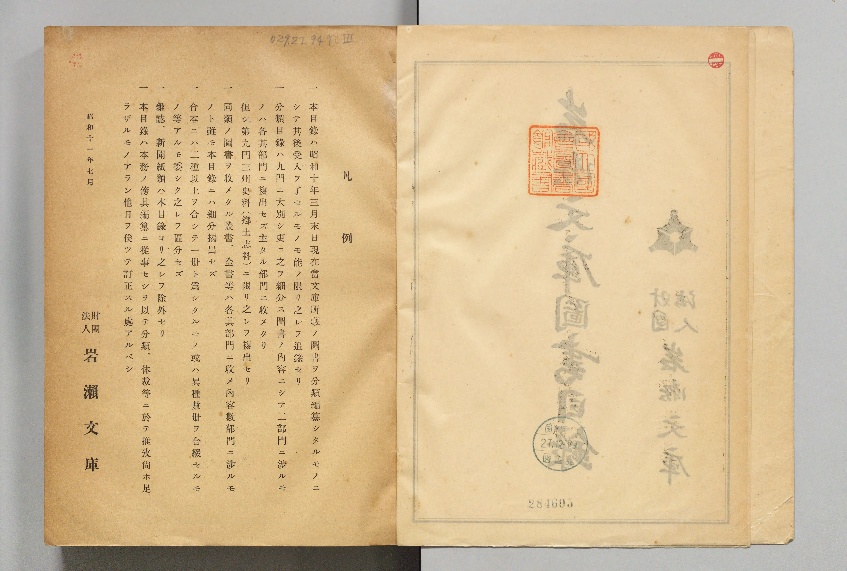 凡例
一 本目錄ハ昭和十年三月末日現在當文庫所藏ノ圖書ヲ分類編纂シタルモノニ
シテ其後受入ヲ了セルモノモ能フ限リ之レヲ追錄セリ
一 分類目錄ハ九門ニ大別シ更ニ之ヲ細分ニ圖書ノ內容ニシテ二部門ニ涉ルモ
ノハ各其部門ニ複出セズ主タル部門ニ收メタリ
但シ第九門三州史料(鄕土志料)ニ限リ之レヲ複出セリ
一 同類ノ圖書ヲ收メタル叢書、全書等ハ各其部門ニ收メ內容數部門ニ涉ルモ
ノト雖モ本目錄ニハ細分摘出セズ
一 合本ニハ二種以上ヲ合シテ一册ト爲シタルモノ或ハ異種數册ヲ合綴セルモ
ノ等アルモ委シク之レヲ區分セズ
一 雜誌、新聞紙類ハ本目錄ヨリ之レヲ除外セリ
一 本目錄ハ本務ノ傍其編纂ニ從事セシヲ以テ分類、體裁等ニ於テ推敲尙ホ足
ラザルモノアラン他日ヲ俟ツテ訂正スル處アルベシ
昭和十一年七月
財團法人 岩瀨文庫
284695